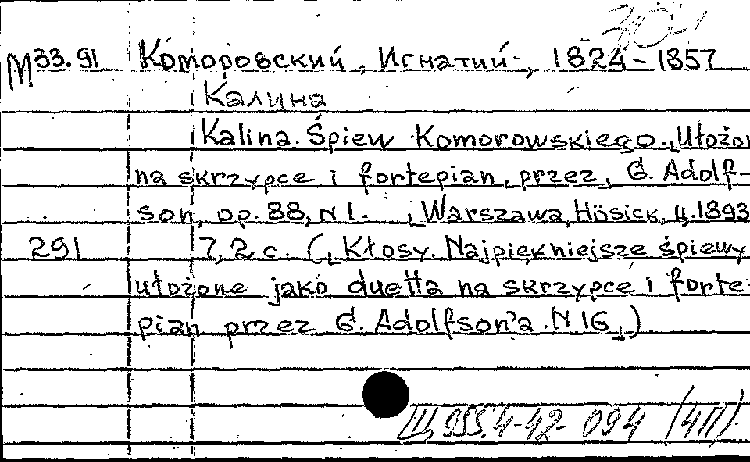 М33.91 Коморовский, Игнатий, 1824-1857
Калина
Kalina. Śpiew Komorowskiego. Ułożo
na skrzypce i fortepian, przez, G. Adolf-
son, op. 88, N 1. Warszawa, Hösick, ц. 1893
291 7, 2 c. (Kłosy. Najpiękniejsze śpiewy
ułożone jako duetta na skrzypce i forte-
pian przez G. Adolfson'a. N 16)
Ш 955.4-42 094 (411)